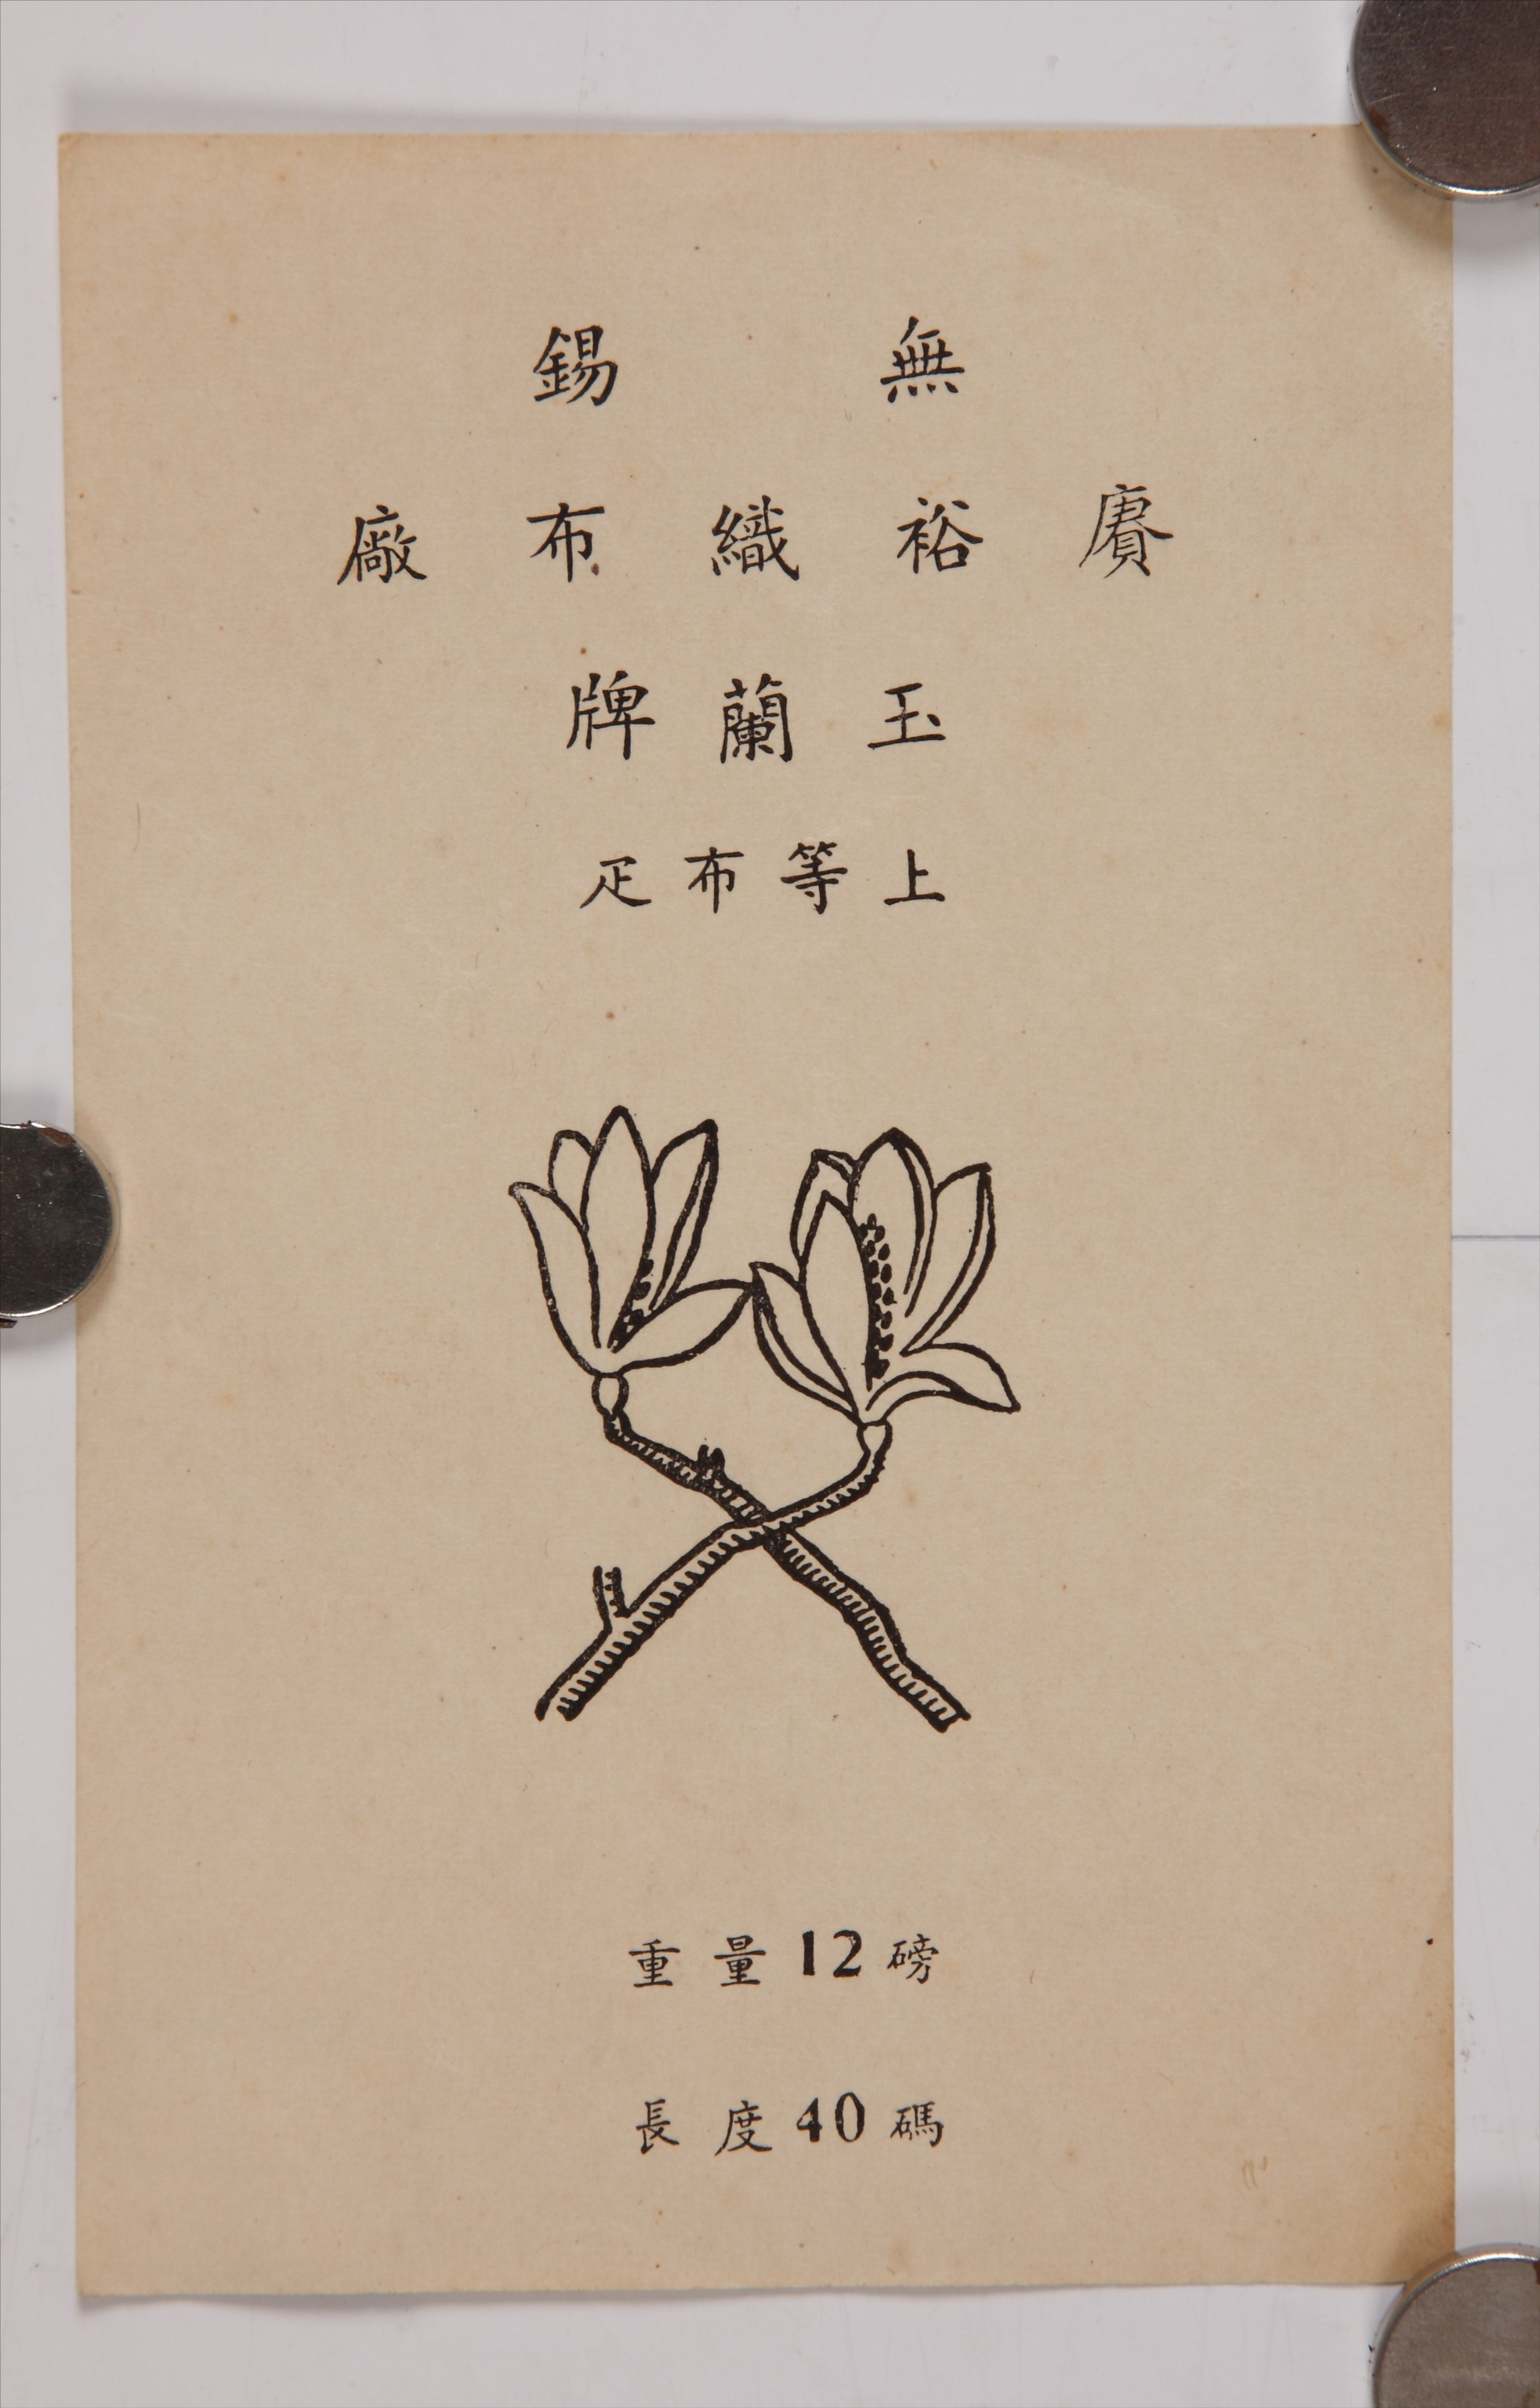 無錫
賡裕織布廠
玉蘭牌
上等布疋
重量12磅
長度40碼